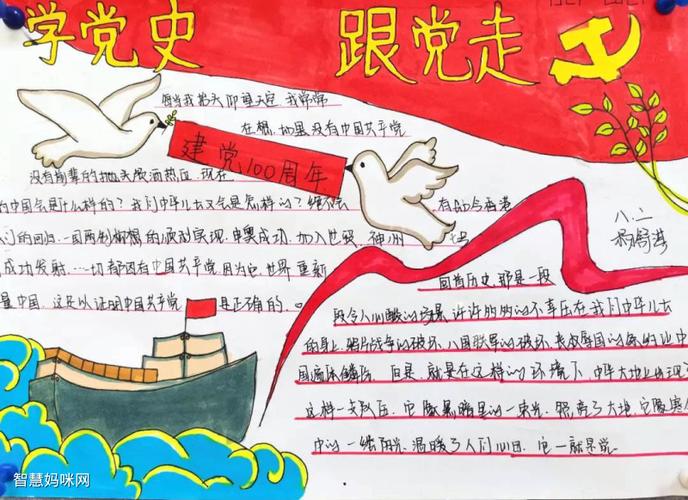 学党史 跟党走
每当我抬头仰望天空,我常常
在想,如果没有中国共产党
建党100周年
没有前辈的抛头颅洒热血,现在
的中国会是什么样的?我们中华儿女又会是怎样的?
们的回归,一国两制 的 实现,申奥成功,加入世贸,神州
成功发射,一切都因有中国共产党,因为它,世界重新
量中国,这足以证明中国共产党 是正确的。
八.二
回首历史,那是一段
段令人心酸的 许许多多的不幸压在我们中华儿女
的身上,鸦片战争的破坏,八国联军的破坏,丧权辱国的条约让中
国遍体鳞伤,但是,就是在这样的环境下,中华大地上出现了
这样一支政压,它像黑暗里的一束光,照亮了大地,它像寒冬
中的一缕阳光,温暖了人们心田,它一就是党
智慧妈咪网